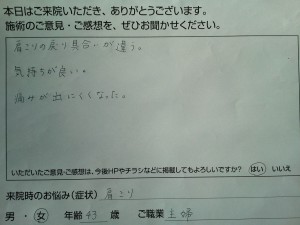 本日はご来院いただき、ありがとうございます。
施術のご意見・ご感想を、ぜひお聞かせください。
肩こりの戻り具合いが違う。
気持ちが良い。
痛みが出にくくなった。
いただいたご意見・ご感想は、今後HPやチラシなどに掲載してもよろしいですか? はい いいえ
来院時のお悩み(症状) 肩こり
男・女 年齢 43 歳 ご職業 主婦